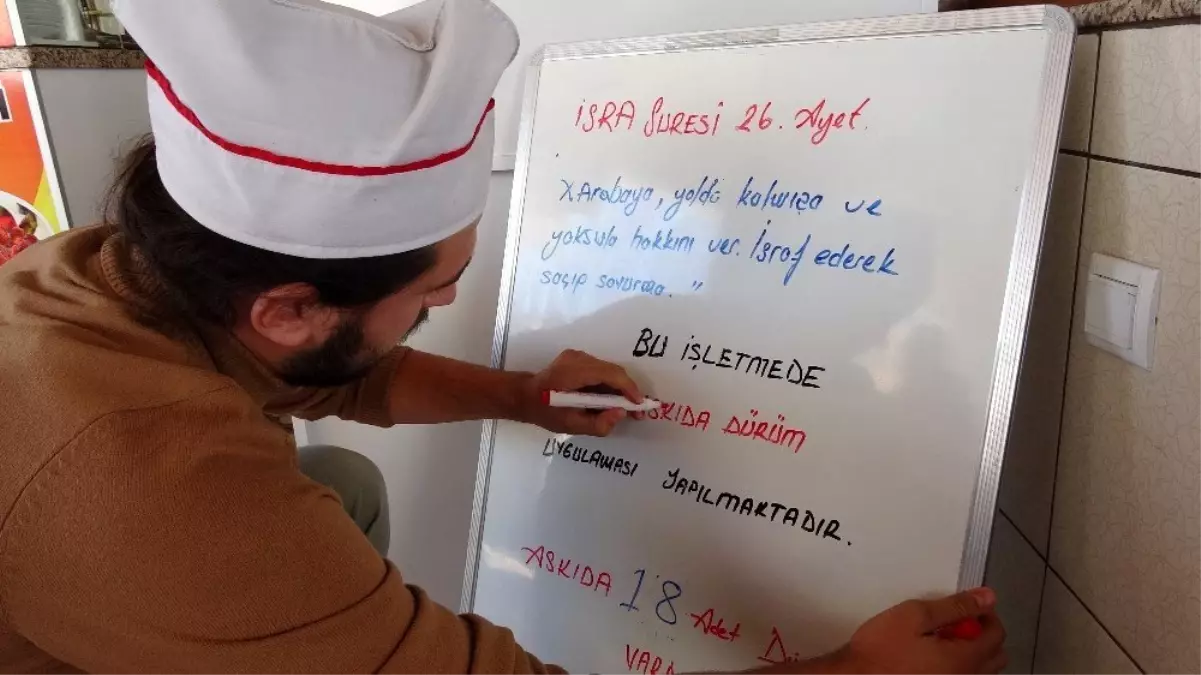 İSRA SURESİ 26. Ayet.
"Akrabaya, yolda kalmışa ve
yoksula hakkını ver. İsraf ederek
saçıp savurma."
BU İŞLETMEDE
ASKIDA DÜRÜM
UYGULAMASI YAPILMAKTADIR.
ASKIDA 18 Adet